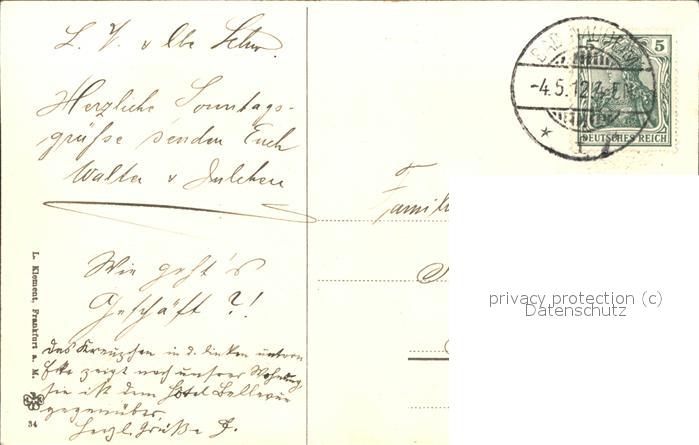 L. V. u
Herzliche Sonntags-
grüße senden Euch
Walter u Julchen
Wie geht's
Geschäft ?!
Das Kreuzchen in d. linken unteren
Ecke zeigt nach unsrer Wohnung
sie ist dem Hotel Bellevue
gegenüber.
Herzl. Grüße
L. Klement, Frankfurt a. M.
34
BAD NAUHEIM
-4.5.12
5 5
DEUTSCHES REICH
Famil
privacy protection (c)
Datenschutz